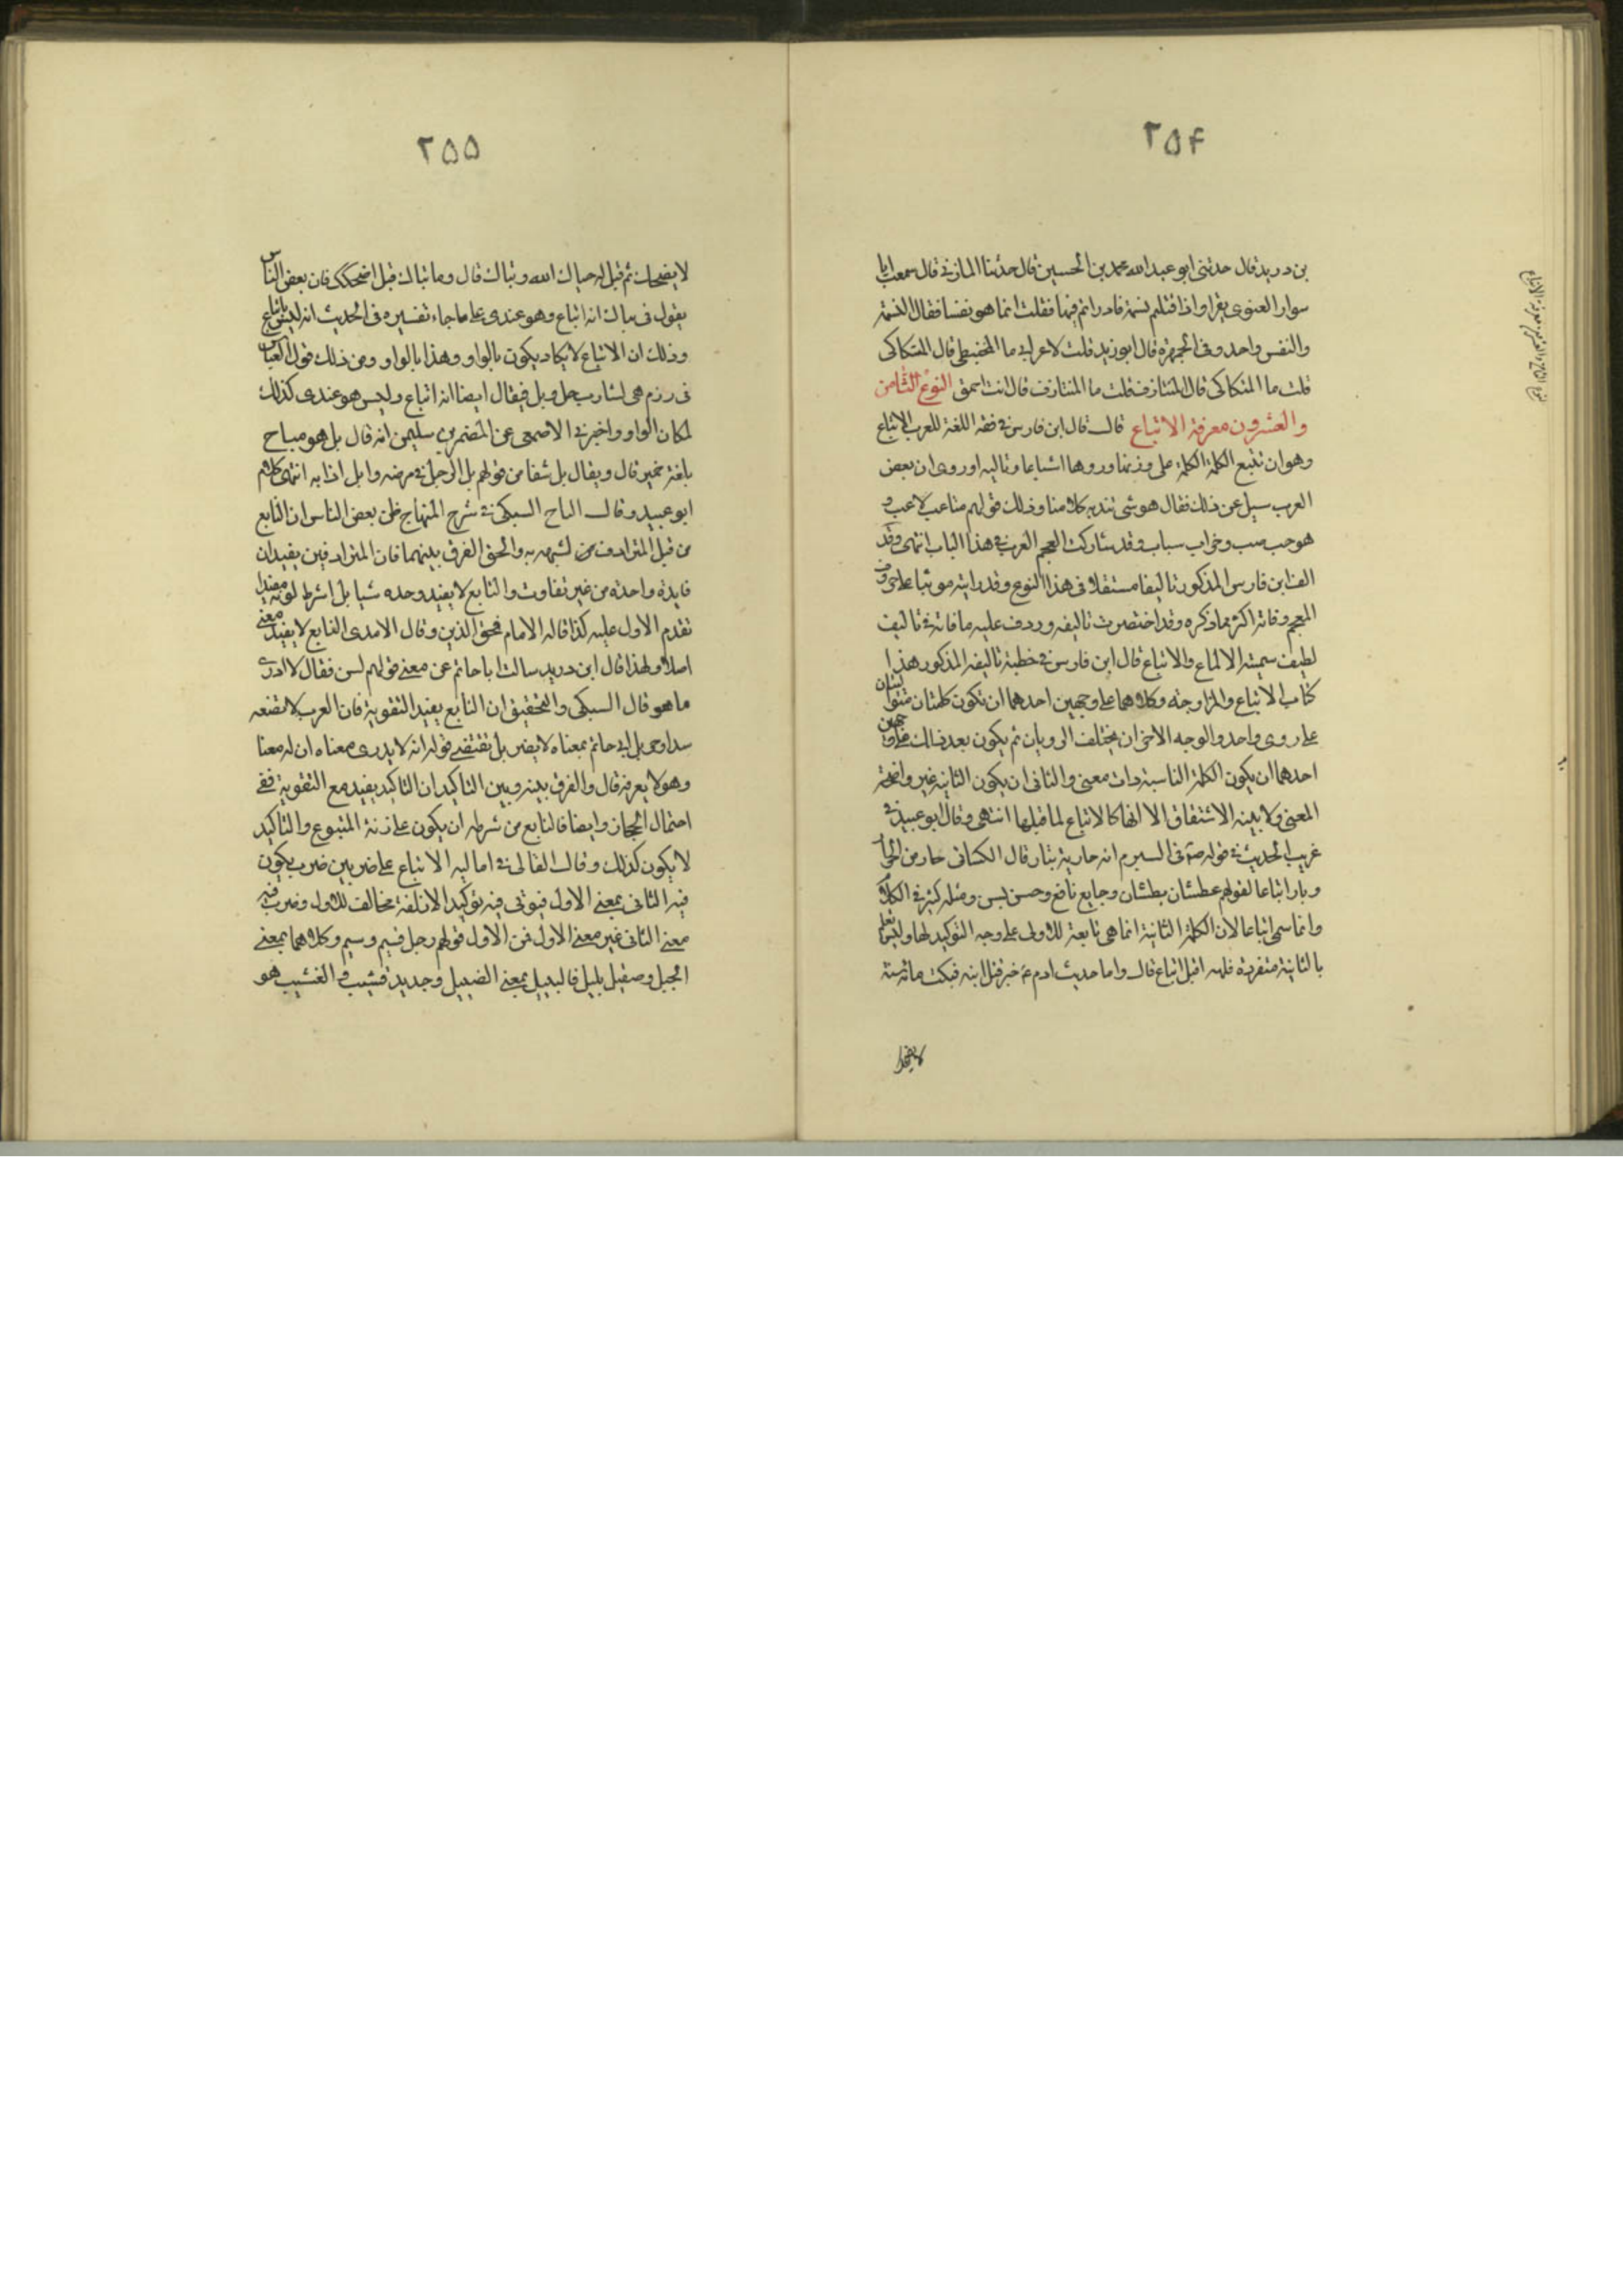 ۲۵۴
بن دريد قال حدثنى ابو عبد الله محمد بن الحسين قال حدثنا المازنى قال سمعت ابا
سوار الغنوى يقرا واذا قتلتم نسمة فادراتم فيها فقلت انما هو نفسا فقال النسمة
والنفس واحد وفى الجمهرة قال ابو زيد قلت لاعرابى ما المحبنطى قال المتكاكى
قلت ما المتكاكى قال المتازف قلت ما المتازف قال انت احمق النوع الثامن
والعشرون معرفة الاتباع قال قال ابن فارس فى فقه اللغة للعرب الاتباع
وهو ان تتبع الكلمة الكلمة على وزنها ورويها اشباعا وتاليه او روى ان بعض
العرب سيل عن ذلك فقال هو شى نتد به كلامنا وذلك قولهم ساغب لاغب و
هو خب ضب وخراب يباب وقد شاركت العجم العرب فى هذا الباب انتهى وقد
الف ابن فارس المذكور تاليفا مستقلا فى هذا النوع وقد رايته مرتبا على حروف
المعجم وفاته اكثر مما ذكره وقد اختصرت تاليفه وردت عليه ما فاته فى تاليف
لطيف سميته الالماع والاتباع قال ابن فارس فى خطبة تاليفه المذكور هذا
كتاب الاتباع والمزاوجة وكلاهما على وجهين احدهما ان تكون كلمتان متواليتان
على روى واحد والوجه الاخر ان يختلف الرويان ثم يكون بعد ذلك على وجهين
احدهما ان يكون الكلمة الثانية ذات معنى والثانى ان يكون الثانية غير واضحة
المعنى ولا بينه الاشتقاق الا انها كالاتباع لما قبلها انتهى وقال ابو عبيد فى
غريب الحديث فى قوله فى الشبرم انه حار يار قال الكسائى حار من الحرارة
ويار اتباعا لقولهم عطشان نطشان وجايع نائع وحسن بسن ومثله كثير فى الكلام
وانما سمى اتباعا لان الكلمة الثانية انما هى تابعة للاولى على وجه التوكيد لها وليس تكلم
بالثانية منفردة فلهذا قيل اتباع قال واما حديث ادم ع خبر قتل ابنه فمكث مائة سنة
لا يضحك
۲۵۵
لا يضحك ثم قيل له حياك الله وبياك قال وما بياك قيل اضحكك فان بعض الناس
يقول فى بياك انه اتباع وهو عندى على ما جاء تفسيره فى الحديث انه ليس باتباع
وذلك ان الاتباع لا يكاد يكون بالواو وهذا بالواو ومن ذلك قول العباس
فى زمزم هى لشارب حل وبل فيقال ايضا انه اتباع وليس هو عندى كذلك
لمكان الواو واخبرنى الاصمعى عن المعتمر بن سليمن انه قال بل هو مباح
بلغة حمير قال ويقال بل شفا من قولهم بل الرجل فى مرضه وابل اذا برا انتهى كلام
ابو عبيد وقال التاج السبكى فى شرح المنهاج ظن بعض الناس ان التابع
من قبل المترادف من لشبهه به والحق الفرق بينهما فان المترادفين يفيدان
فايدة واحدة من غير تفاوت والتابع لا يفيد وحده شيا بل شرط كونه مفيدا
تقدم الاول عليه كذا قاله الامام فخر الدين وقال الامدى التابع لا يفيد معنى
اصلا ولهذا قال ابن دريد سالت ابا حاتم عن معنى قولهم بسن فقال لا ادرى
ما هو قال السبكى والتحقيق ان التابع يفيد التقوية فان العرب لا تضعه
سدا وجهل ابى حاتم بمعناه لا يضر بل تقتضى قوله انه لا يدرى معناه ان له معنا
وهو لا يعرفه قال والفرق بينه وبين التاكيد ان التاكيد يفيد مع التقوية نفى
احتمال المجاز وايضا فالتابع من شرطه ان يكون على زنة المتبوع والتاكيد
لا يكون كذلك وقال القالى فى اماليه الاتباع على ضربين ضرب يكون
فيه الثانى بمعنى الاول فيوتى فيه توكيدا لان لفظه مخالف للاول وضرب فيه
معنى الثانى غير معنى الاول فمن الاول قولهم رجل قسيم وسيم وكلاهما بمعنى
الجميل وضئيل بئيل فالبئيل بمعنى الضئيل وجديد قشيب والقشيب هو